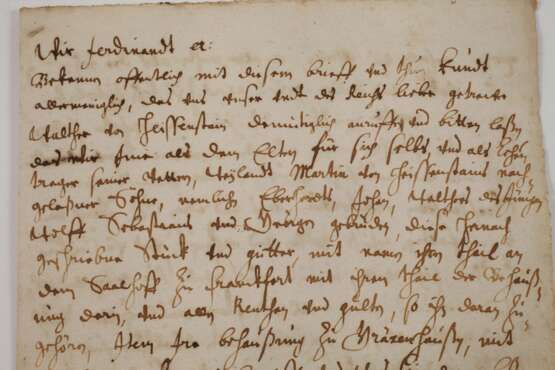 Wir Ferdinandt etc:
Bekennen offentlich mit diesem brieff und thun kundt
allermeniglich, das uns unser undt des Reichs liebe getrewe
Walther von Heissenstein demütiglich anruffen und bitten laßen
das wir Ime als dem Elten für sich selbs, und als Lehen
trager seiner Vettern, Weylandt Martin von Heissenstains nach
gelaßner Söhne, nemlich Eberhardts, Johan, Walthers des Jüngern
Wolff Sebastians und Georgen gebrüdern, diese hernach
geschriebne Stuck und gütter, mit namen ihren theil an
dem Saalhoff zu Franckfort mit ihren theil der Behauß-
ung darin, und allen Renthen und gülten, so ihr daran zu-
gehörn, Item Ire behaußung zu mit